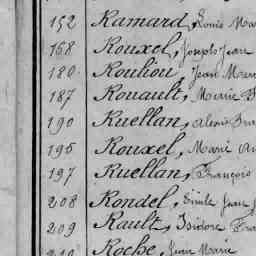 152 Ramard, Louis Mar
168 Rouxel, Joseph Jean
180 Rouliou, Jean Marie
187 Rouault, Marie
190 Ruellan, Alexis Fra
195 Rouxel, Marie
197 Ruellan, François
208 Rondel, Emile Jean
209 Rault, Isidore Fra
210 Roche, Jean Marie